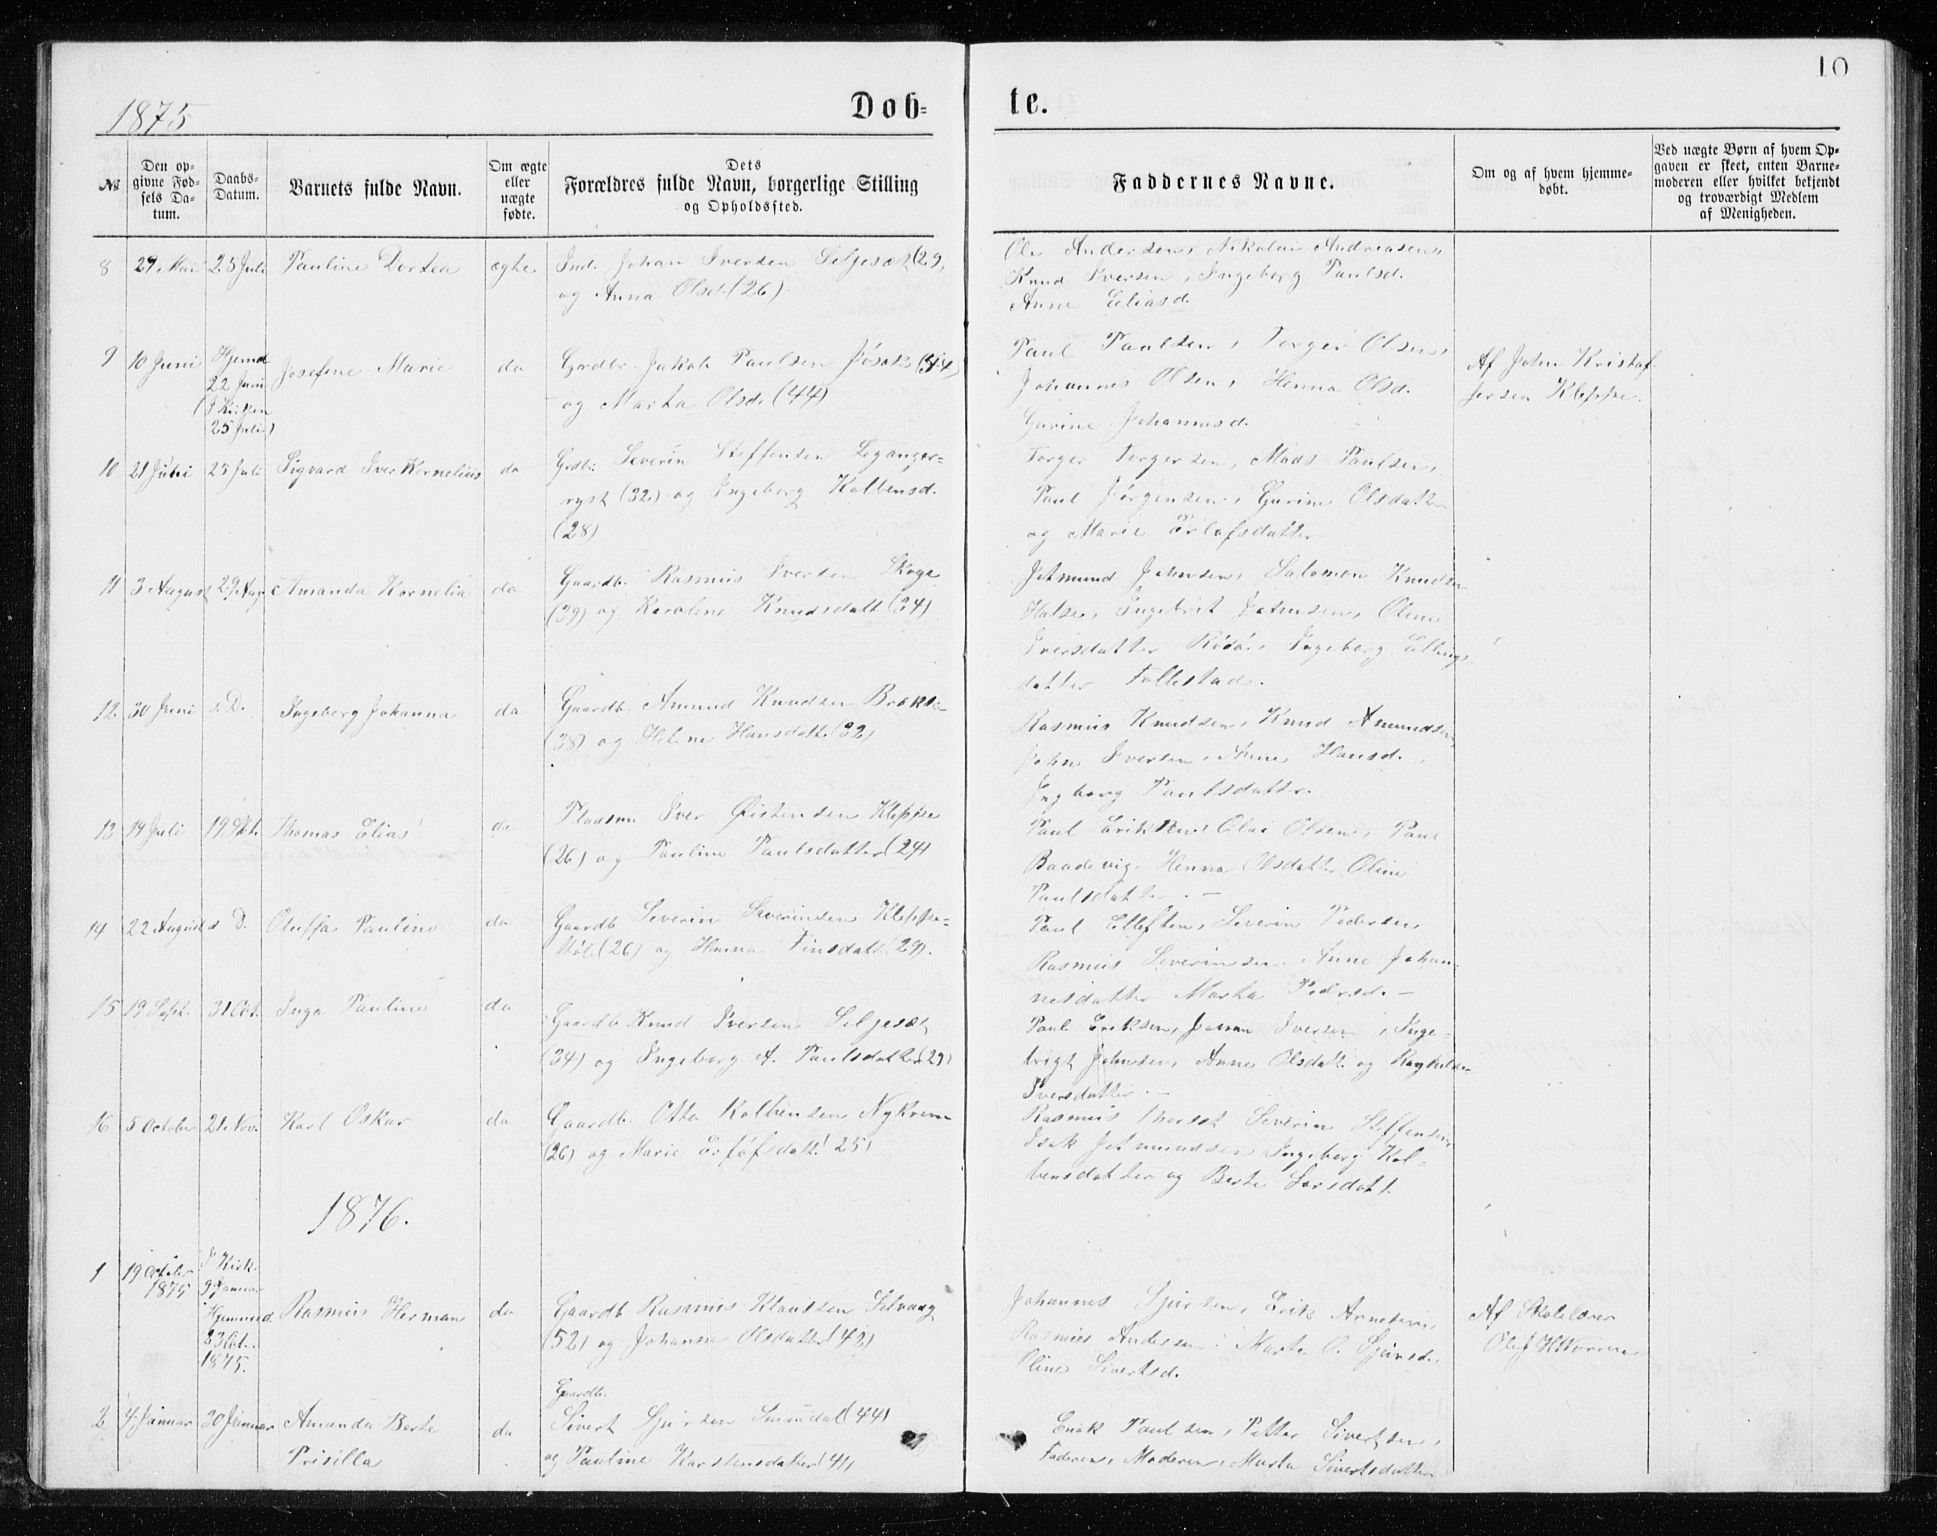 10
1875
Døb-
te.
№
Den op-
givne Fød-
sels Da-
tum.
Daabs-
Datum.
Barnets fulde Navn.
Om ægte
eller
uægte
fødte.
Dets
Forældres fulde Navn, borgerlige Stilling
og Opholdssted.
Faddernes Navne.
Om og af hvem hjemme-
døbt.
Ved uægte Børn af hvem Op-
gaven er skeet, enten Barne-
moderen eller hvilket bekjendt
og troværdigt Medlem
af Menigheden.
8 29 Mai 25 Juli Pauline Dortea ægte Ind. Johan Iversen Seljesæt (29)
og Anna Olsd. (26)
Ole Andersen, Nikolai Andreasen,
Knud Iversen, Ingeborg Paulsd.
Anne Eliasd.
9 10 Juni Hjemd.
22 Juni
(I Kirken
25 Juli)
Josefine Marie do Grdbr. Jakob Paulsen (44)
og Marta Olsd. (44)
Paul Paulsen, Torger Olsen,
Johannes Olsen, Henna Olsd.
Gurine Johannesd.
Af John Kristof-
fersen Kleppe.
10 21 Juni 25 Juli Sigvard Iver Kornelius do Grdbr. Severin Steffensen Leganger-
(32) og Ingeborg Kolbensd.
(28)
Torger Torgersen, Mads Paulsen,
Paul Jørgensen, Gurine Olsdatter
og Marie Erlofsdatter
11 3 August 29 Aug Amanda Kornelia do Gaardb. Rasmus Iversen Skoge
(39) og Karoline Knudsdatt. (34)
Jetmund Johnsen, Salomon Knudsen
Halse, Ingebrit Johnsen, Oline
Iversdatter, Ingeborg Ellings-
datter Follestad.
12. 30 Juni s. D. Ingeborg Johanna do Gaardb. Amund Knudsen Brække
(38) og Heline Hansdatt. (32)
Rasmus Knudsen, Knud Amundsen
John Iversen, Anne Hansd.
Ingeborg Paulsdatter.
13 19 Juli 19 Spt. Thomas Elias do Pladsm Iver Øistensen Kleppe
(26) og Pauline Paulsdatter (24)
Paul Eriksen, Olai Olsen, Paul
Baadevig, Henna Olsdatter, Oline
Paulsdatter. —
14 22 August s D. Oluffa Pauline do Gaardb Severin Severinsen Kleppe-
(26) og Henna Finsdatt. (29).
Paul Elleftsen, Severin Pedersen,
Rasmus Severinsen, Anne Johan-
nesdatter Marta Pedersd. —
15 19 Sept. 31 Oct. Inga Pauline do Gaardb. Knud Iversen Seljesæt
(34) og Ingeborg A. Paulsdatter (29)
Paul Eriksen, Iversen, Inge-
brigt Johnsen, Anne Olsdatt. og Raghilde
Iversdatter. —
16 5 October 21. Nov. Karl Oskar do Gaardb. Otto Kolbensen Nykrem
(26) og Marie Erlofsdatt. (25)
Rasmus Severin Steffensen,
Isak Jetmundsen Ingeborg Kol-
bensdatter og Berte Larsdatt.
1876.
1 19 October
1875
I Kirk.
9 Januar
Hjemmed.
23 Oct.
1875.
Rasmus Herman do Gaardb Rasmus Klausen Selvaag
(52) og Johanne Olsdatter (42)
Johannes Sjursen, Erik Arnesen,
Rasmus Andersen, Marte O. Sjursd.
Oline Sivertsd.
Af Skolelærer
Olef H Norren
2 4 Januar 30 Januar Amanda Berte
Prisilla
do Gaardb.
Sivert Sjursen Smaadal (44)
og Pauline Karstensdatter (41)
Enok Paulsen, Petter Sivertsen,
Faderen, Moderen, Marta Sivertsdatter